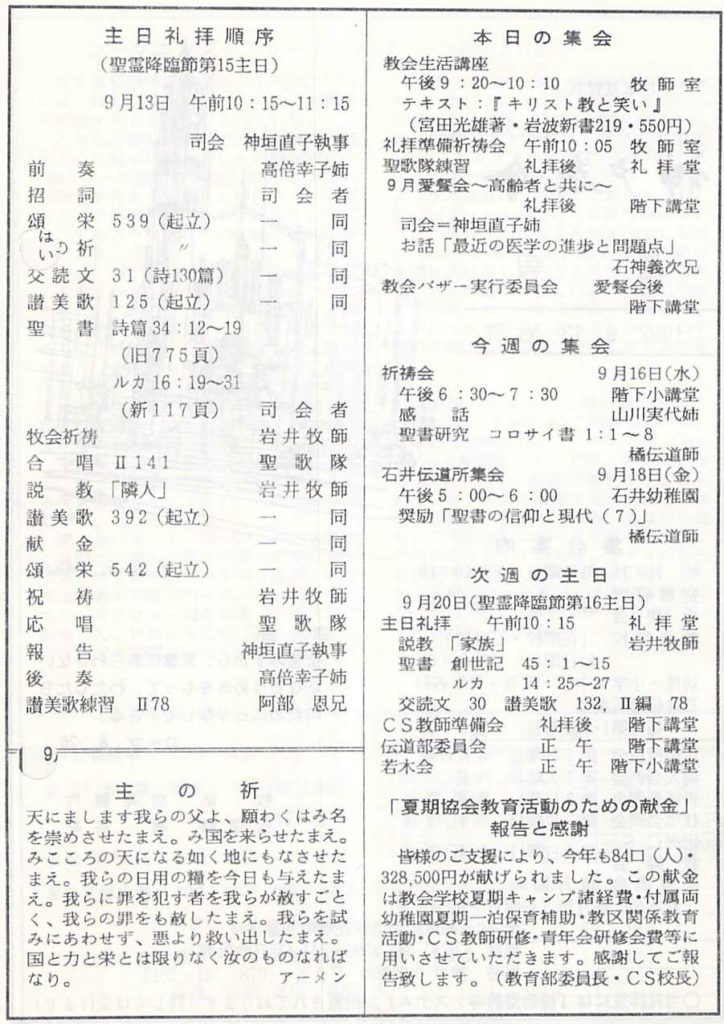 主日礼拝順序
(聖霊降臨節第15主日)
9月13日 午前10:15〜11:15
司会 神垣直子執事
前奏 高倍幸子姉
招詞 司会者
頌栄 539(起立) 一同
はい の祈 〃 一同
交読文 31(詩130篇) 一同
讃美歌 125(起立) 一同
聖書 詩篇34:12〜19
(旧775頁)
ルカ16:19〜31
(新117頁) 司会者
牧会祈祷 岩井牧師
合唱 Ⅱ141 聖歌隊
説教「隣人」 岩井牧師
讃美歌 392(起立) 一同
献金 一同
頌栄 542(起立) 一同
祝祷 岩井牧師
応唱 聖歌隊
報告 神垣直子執事
後奏 高倍幸子姉
讃美歌練習 Ⅱ78 阿部 恩兄
9
主の祈
天にまします我らの父よ、願わくはみ名
を崇めさせたまえ。み国を来らせたまえ。
みこころの天になる如く地にもなさせた
まえ。我らの日用の糧を今日も与えたま
え。我らに罪を犯す者を我らが赦すごと
く、我らの罪をも赦したまえ。我らを試
みにあわせず、悪より救い出したまえ。
国と力と栄とは限りなく汝のものなれば
なり。 アーメン
本日の集会
教会生活講座
午後9:20〜10:10 牧師室
テキスト:『キリスト教と笑い』
(宮田光雄著・岩波新書219・550円)
礼拝準備祈祷会 午前10:05 牧師室
聖歌隊練習 礼拝後 礼拝堂
9月愛餐会〜高齢者と共に〜
礼拝後 階下講堂
司会=神垣直子姉
お話「最近の医学の進歩と問題点」
石神義次兄
教会バザー実行委員会 愛餐会後
階下講堂
今週の集会
祈祷会 9月16日(水)
午後6:30〜7:30 階下小講堂
感話 山川実代姉
聖書研究 コロサイ書 1:1〜8
橘伝道師
石井伝道所集会 9月18日(金)
午後5:00〜6:00 石井幼稚園
奨励「聖書の信仰と現代(7)」
橘伝道師
次週の主日
9月20日(聖霊降臨節第16主日)
主日礼拝 午前10:15 礼拝堂
説教「家族」 岩井牧師
聖書 創世記 45:1〜15
ルカ 14:25〜27
交読文 30 讃美歌 132, Ⅱ編 78
CS教師準備会 礼拝後 階下講堂
伝道部委員会 正午 階下講堂
若木会 正午 階下小講堂
「夏期協会教育活動のための献金」
報告と感謝
皆様のご支援により、今年も84口(人)・
328,500円が献げられました。この献金
は教会学校夏期キャンプ諸経費・付属両
幼稚園夏期一泊保育補助・教区関係教育
活動・CS教師研修・青年会研修会費等に
用いさせていただきます。感謝してご報
告致します。(教育部委員長・CS校長)